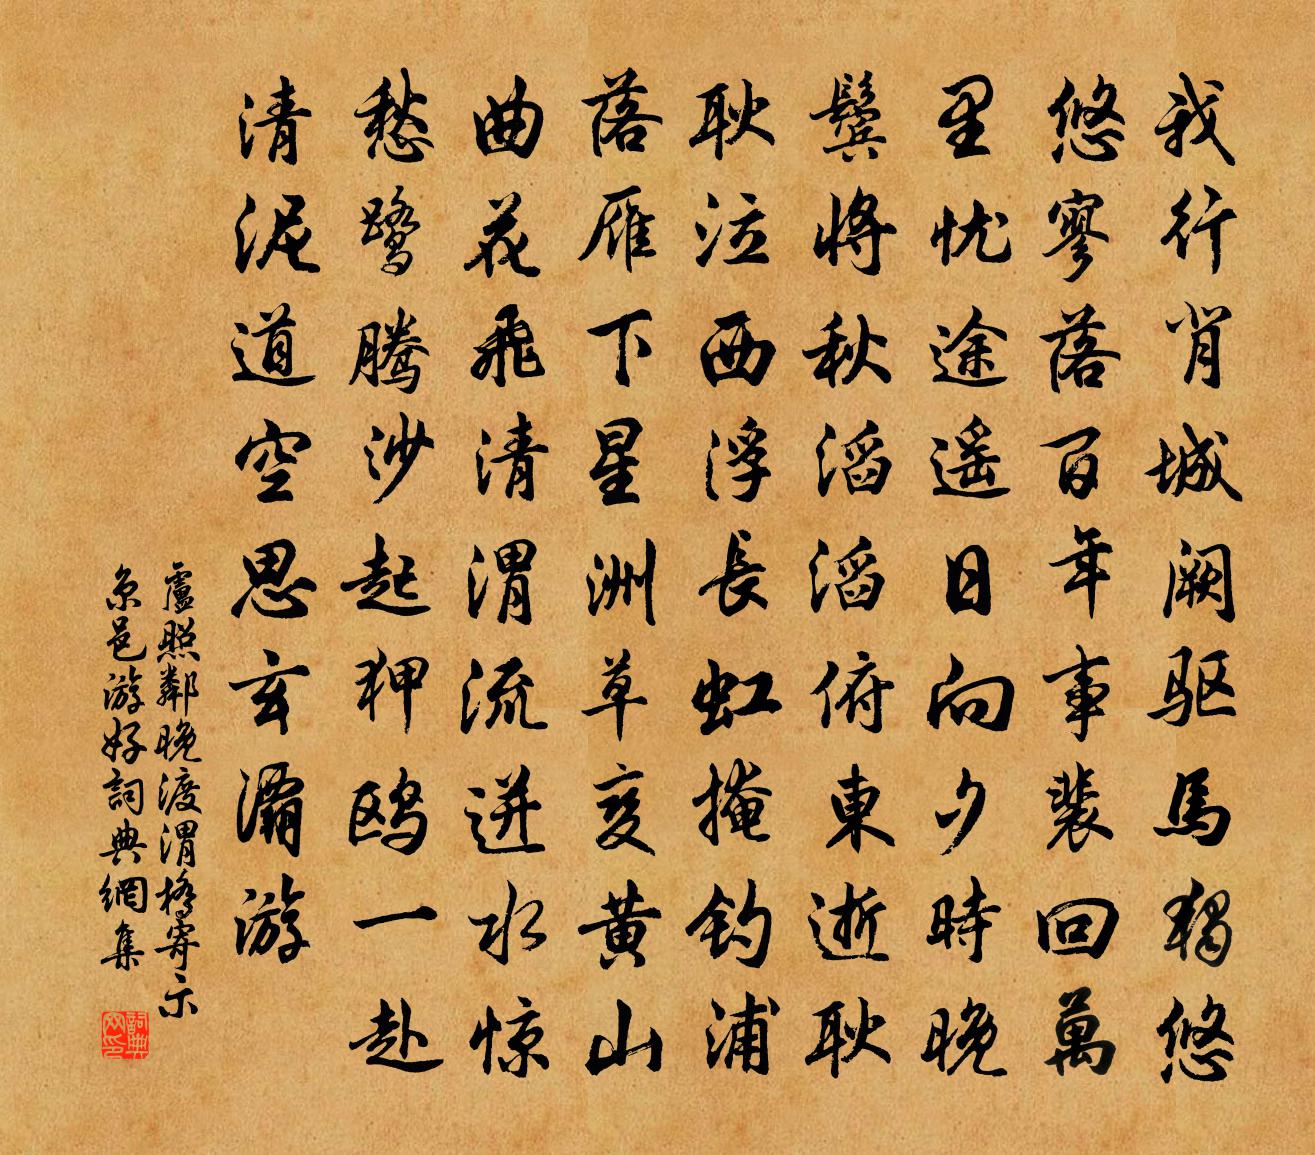 我行肖城阙驱馬獨悠
悠寥落百年事裴回萬
里忧途遥日向夕時晚
鬓將秋滔滔俯東逝耿
耿泣西浮長虹掩钓浦
落雁下星洲草变黄山
曲花飛清渭流迸水惊
愁鹭腾沙起狎鸥一赴
清泥道空思玄灞游
盧照鄰晚渡渭橋寄示
京邑游好詞典網集
詞典网印